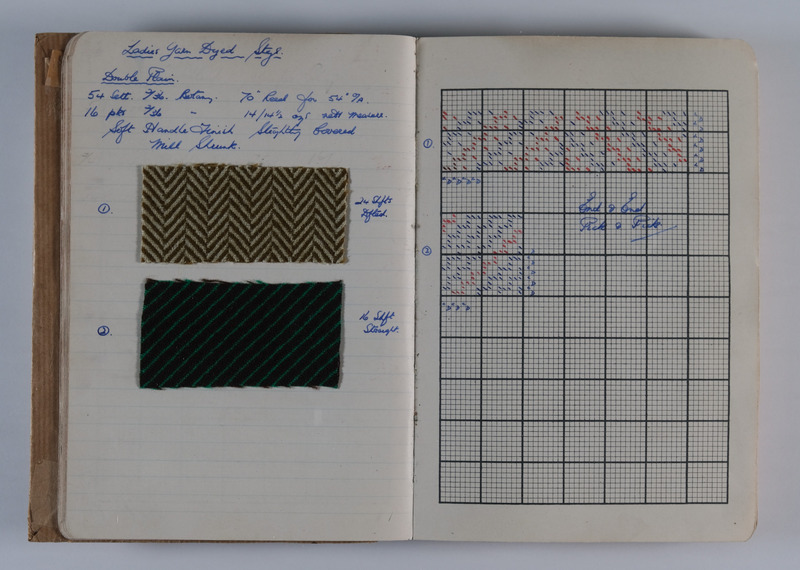 Ladies Yarn Dyed Stgs.
Double Plain.
54 Sett. 2/36. Botany. 70" Reed for 54" F/A.
16 pks 2/36 " 14/14½ ozs nett measure.
Soft Handle Finish Slightly Covered
Mill Shrunk.
①. 24 Shfts
Drafted.
②. 16 Shft
Straight.
①
End & End
Pick & Pick
②